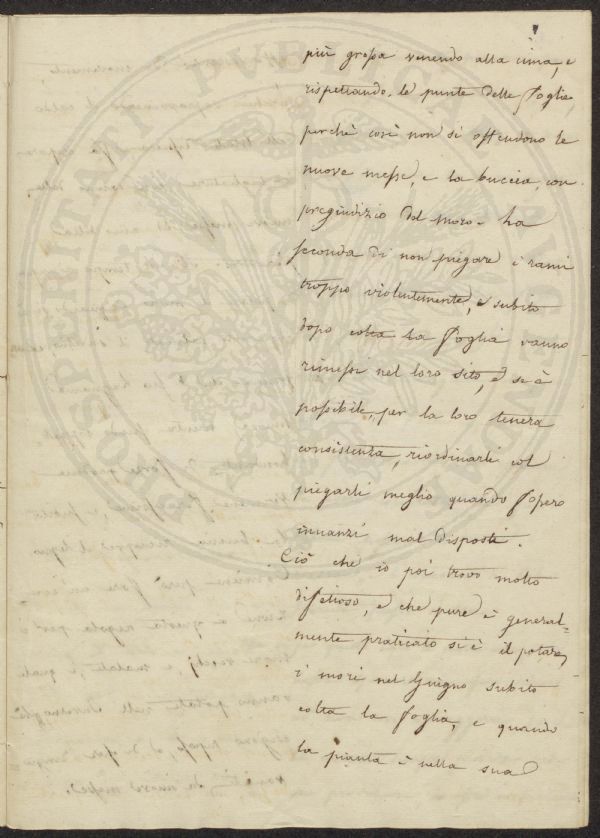 più grossa venendo alla cima, e
rispettando le punte delle foglie
perchè così non si offendono le
nuove messe, e la buccia, con
pregiudizio del moro. La
seconda di non piegare i rami
troppo violentemente, e subito
dopo colta la foglia vanno
rimessi nel loro sito, e se è
possibile, per la loro tenera
consistenza, riordinarli col
piegarli meglio quando fossero
innanzi mal disposti.
Ciò che io poi trovo molto
difettoso, e che pure è general=
mente praticato si è il potare
i mori nel Giugno subito
colta la foglia, e quando
la pianta è nella sua
PROSPERITATI PVBLICAE AVGENDAE